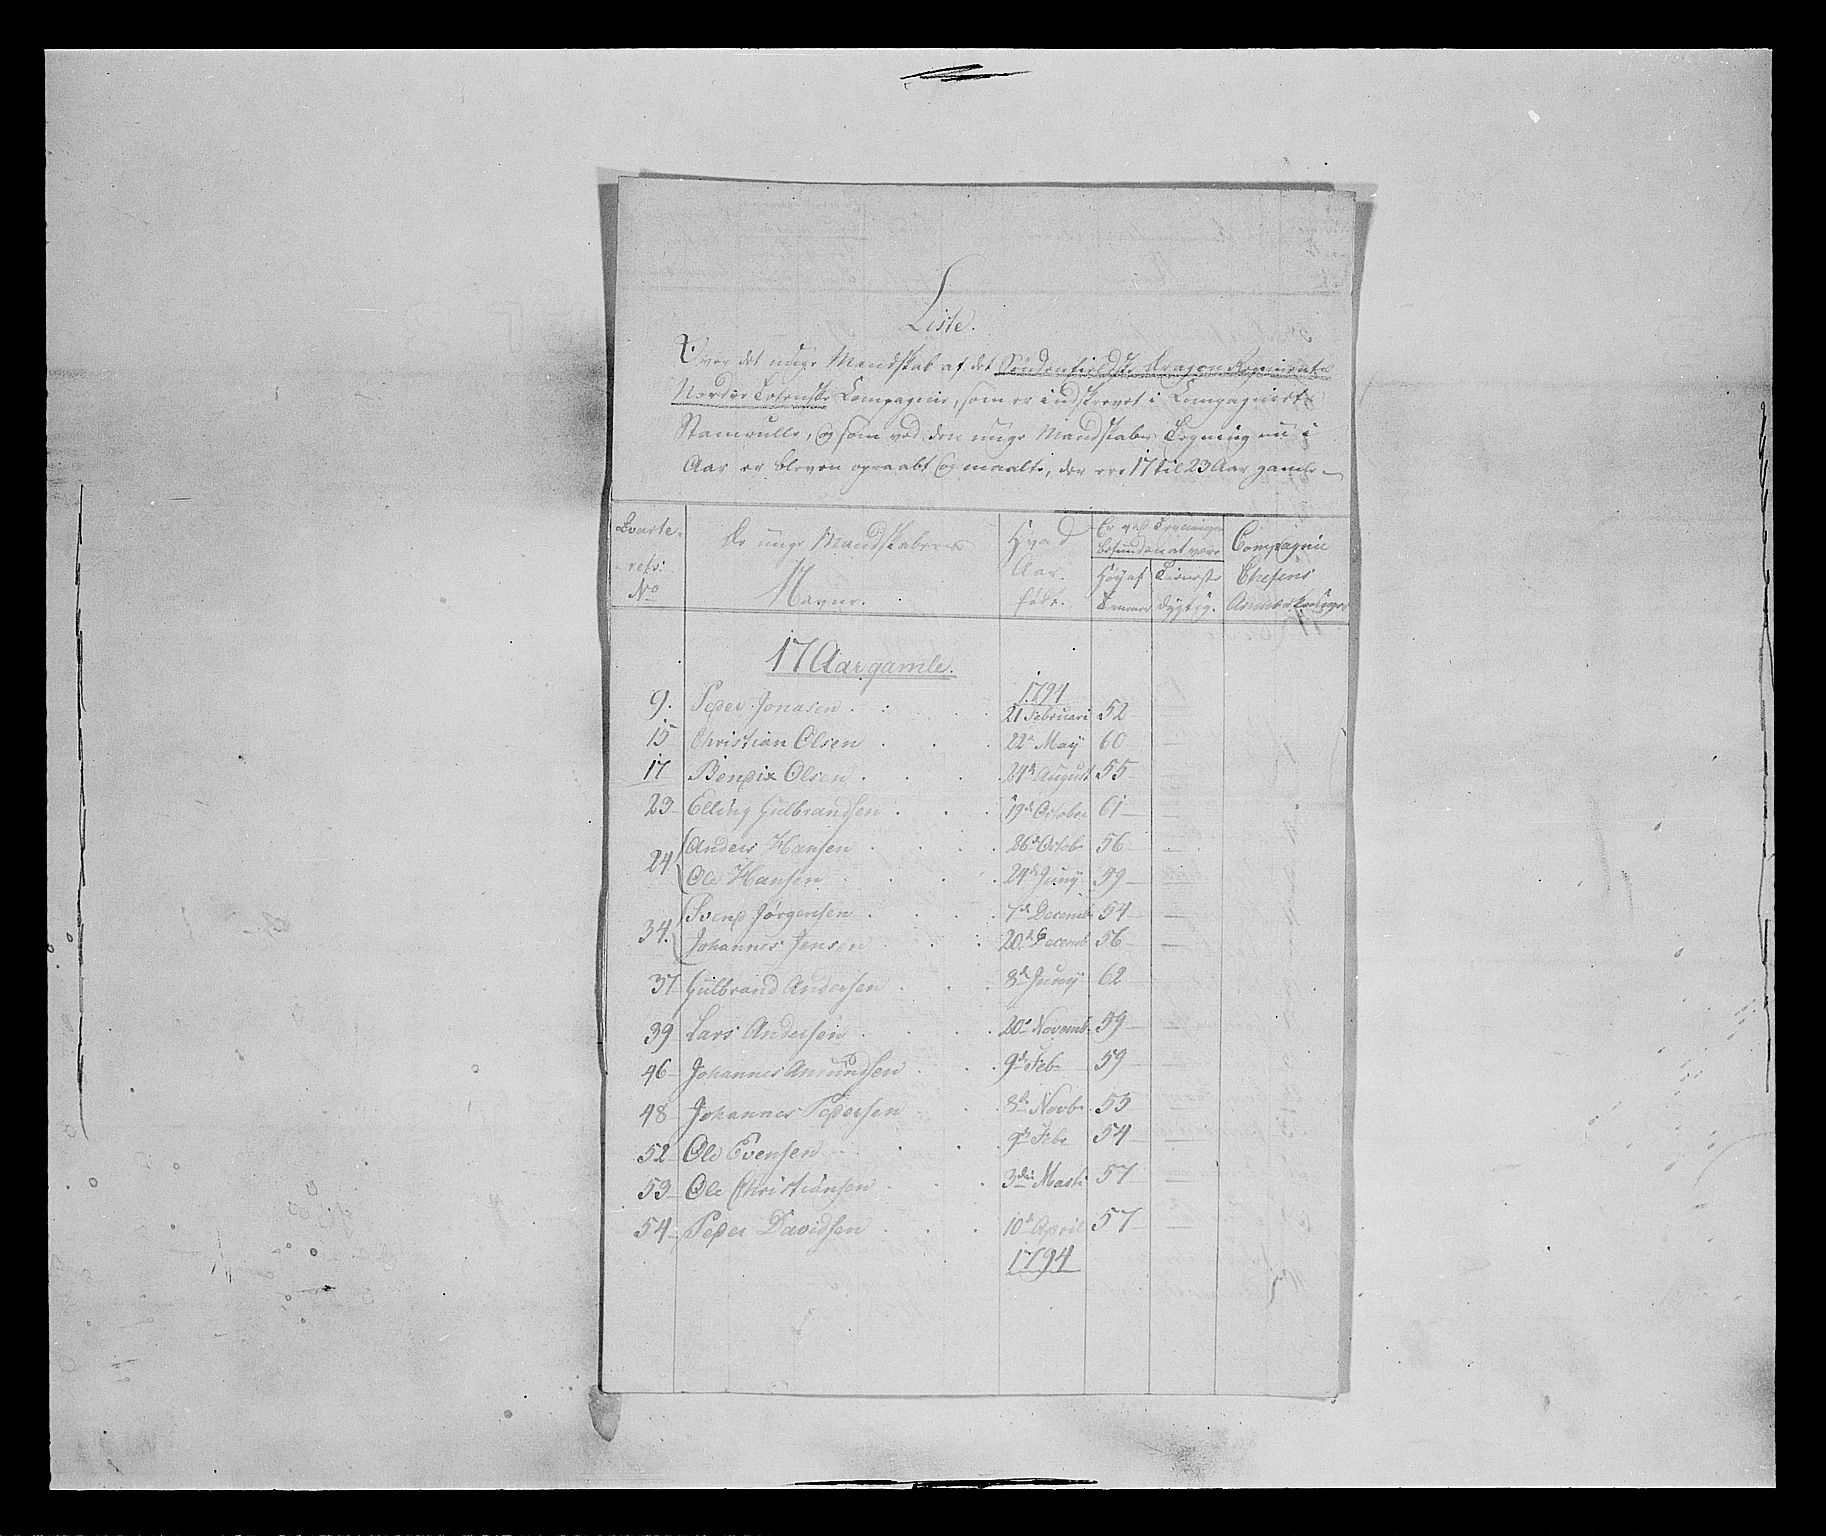 Liste.
Over det unge Mandskab af det Söndenfieldske Dragon Regiments
Nordre Totenske Compagnie, som er indskrevet i Compagniets
Stamrulle, og som ved den unge Mandskabs Tegning nu i
Aar er bleven opraabt og maalt, der ere 17 til 23 Aar gamle
Qvarte-
reks:
No
De unge Mandskabernes
Navne.
Hvad
Aar
född.
Er ved Tegningen
befunden at være
Höy af
Tommer
Tieneste
dygtig.
Compagnie
Chefens
Anmærkninger
17 Aar gamle.
1794
9. Peder Jonasen 21 Februari 52
15 Christian Olsen 22de May 60
17 Bendix Olsen 24de August 55
23 Elling Gulbrandsen 19de October 61
24 Anders Hansen 26de Octob 56
Ole Hansen 24de Juny 59
34. Svend Jörgensen 7de Decemb 54
Johannes Jensen 20de Decemb 56
37 Gulbrand Andersen 8de Juny 62
39 Lars Andersen 20de Novemb 59
46 Johannes Amundsen 9de Febr 59
48 Johannes Pedersen 8de Novbr 53
52 Ole Evensen 9de Febr 54
53 Ole Christiansen 3die Marti 57
54 Peder Davidsen 10de April 57
1794